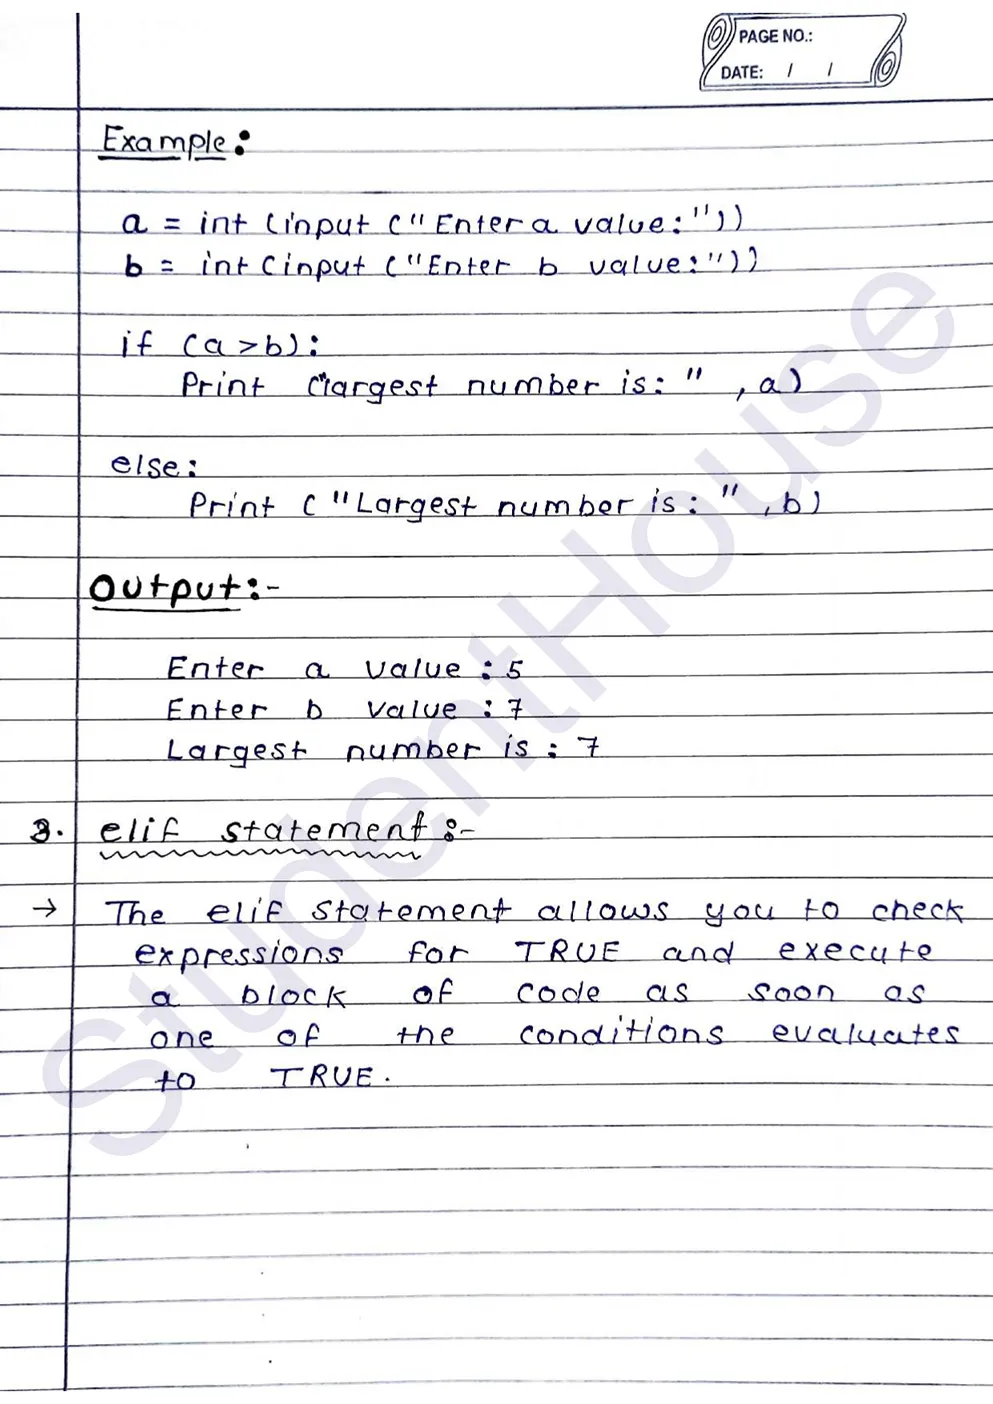 PAGE NO.:
DATE: / /
Example:
a = int (input ("Enter a value:"))
b = int (input ("Enter b value:"))
if (a>b):
Print ("largest number is: " , a)
else:
Print ( "Largest number is: " , b)
Output:-
Enter a value : 5
Enter b value : 7
Largest number is : 7
3. elif statement :-
→ The elif statement allows you to check
expressions for TRUE and execute
a block of code as soon as
one of the conditions evaluates
to TRUE.
StudentHouse